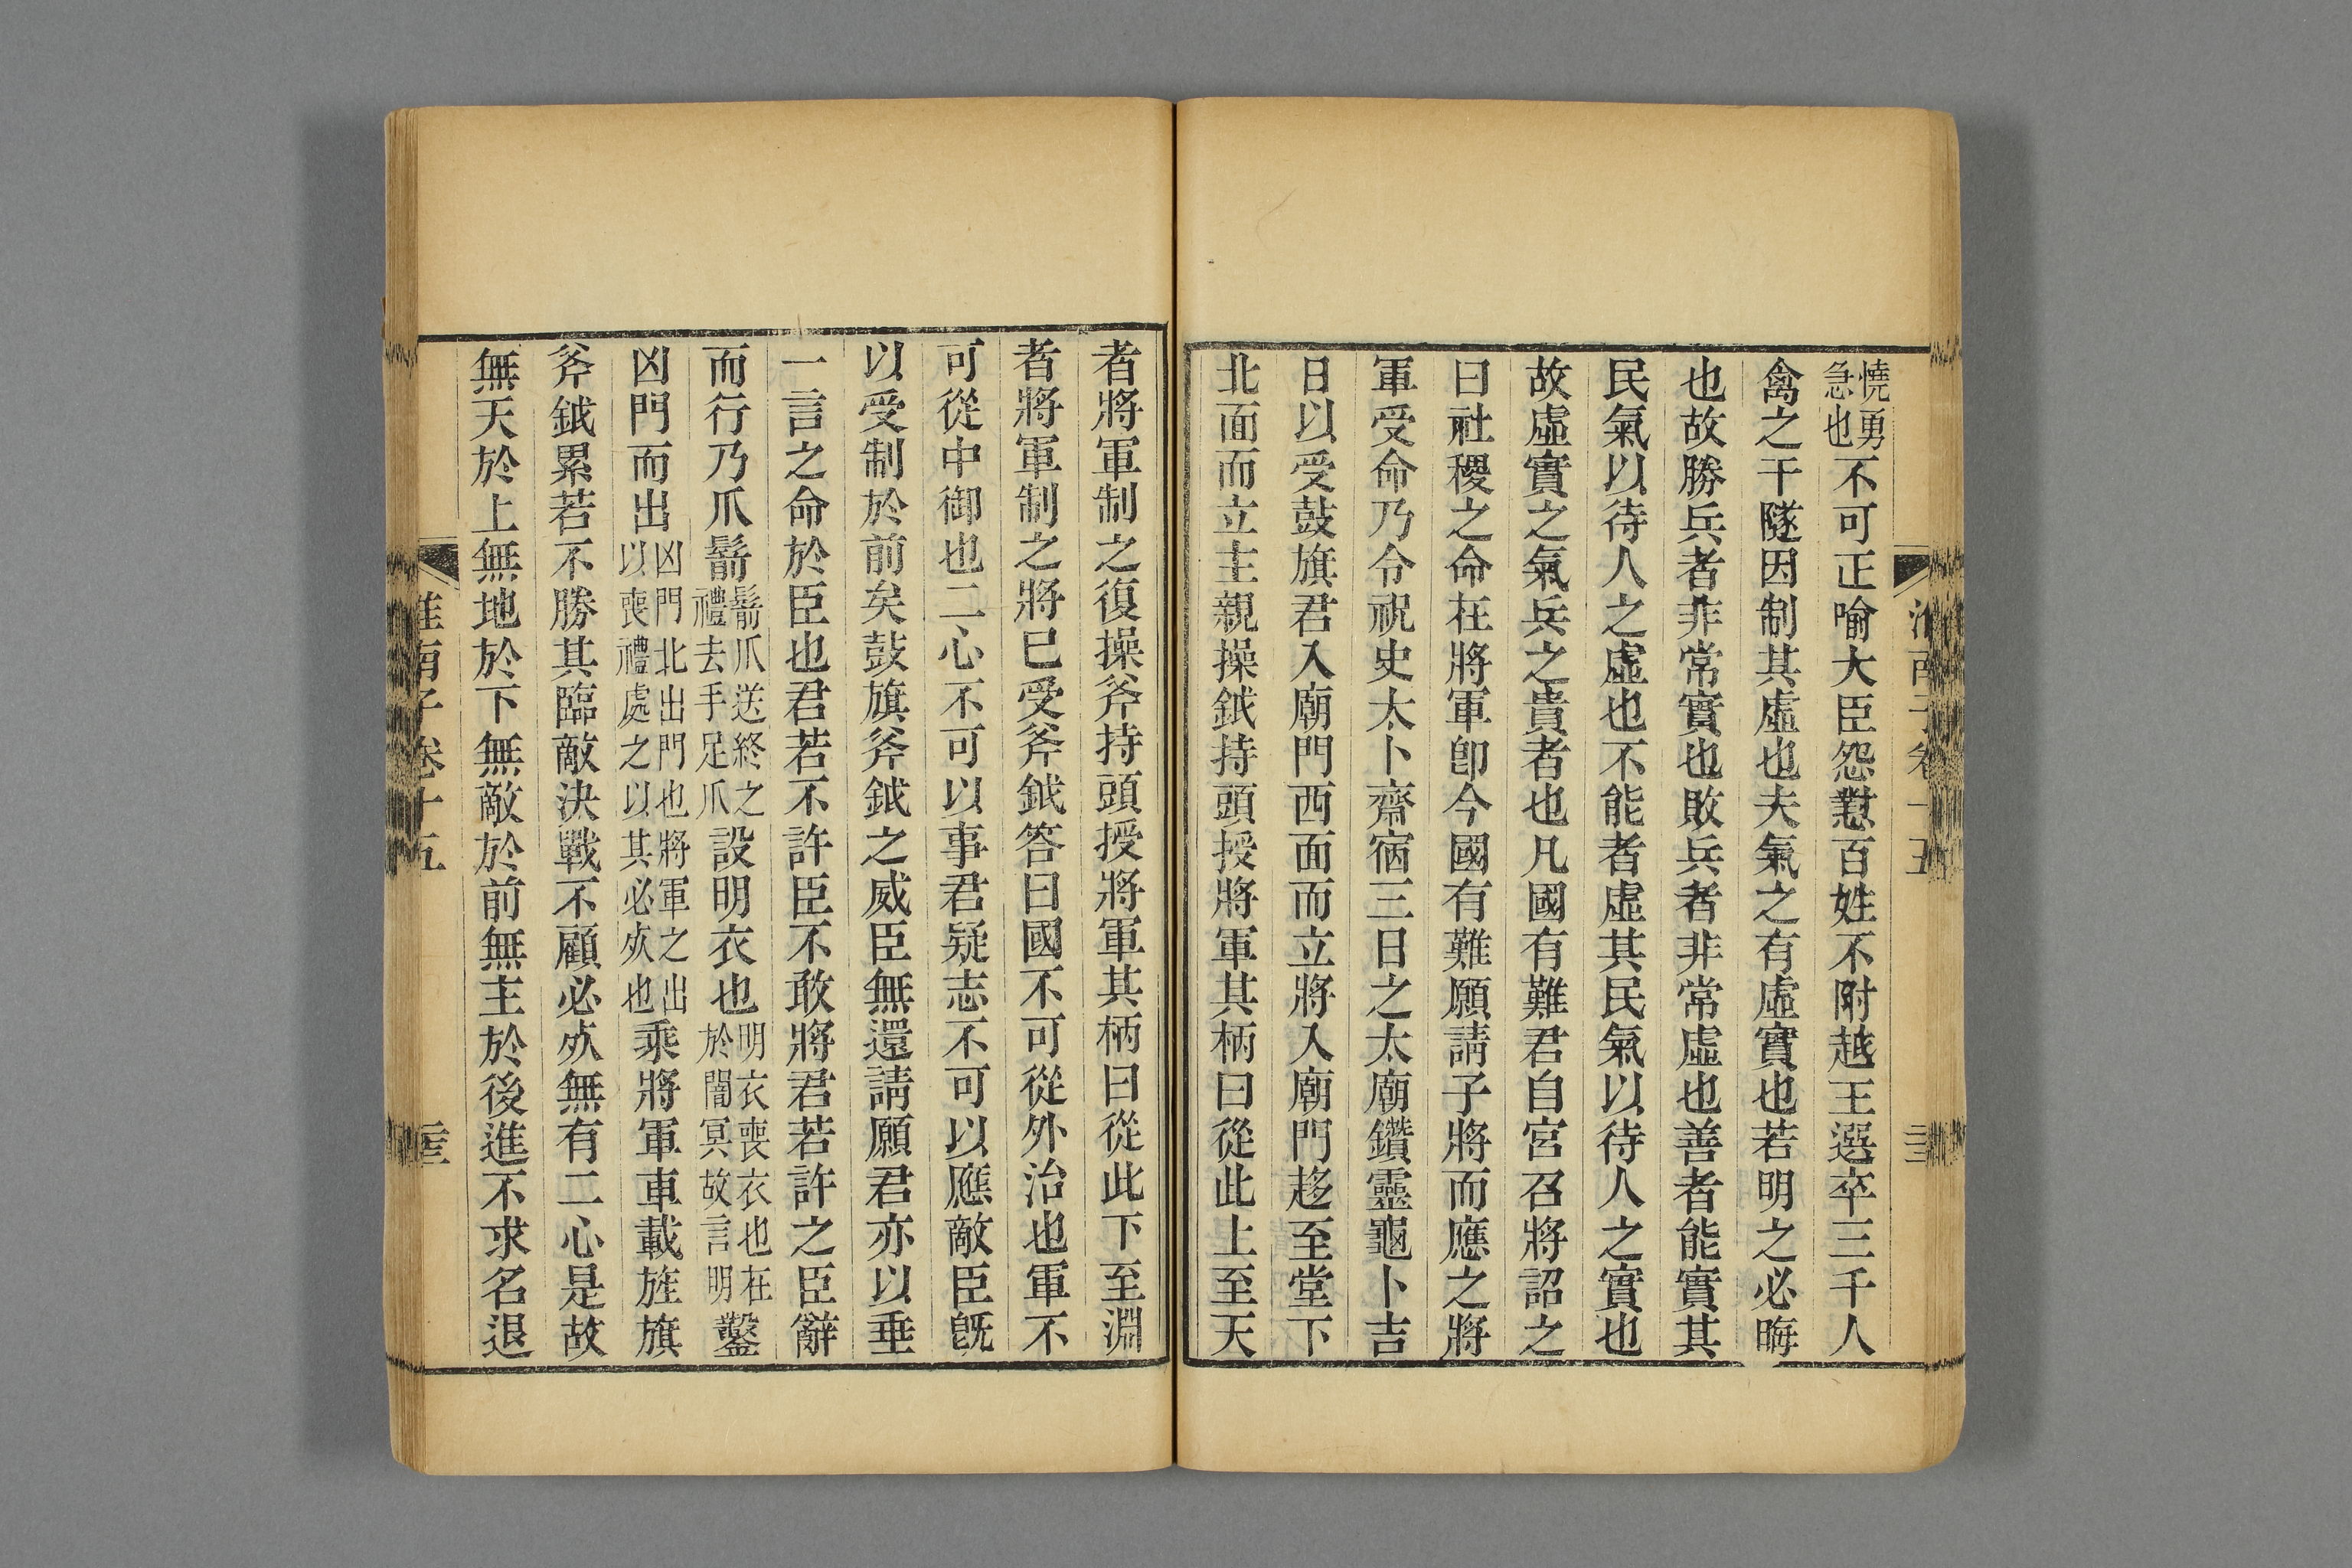 憢勇急也不可正喻大臣怨懟百姓不附越王選卒三千人
禽之干隧因制其虛也夫氣之有虛實也若明之必晦
也故勝兵者非常實也敗兵者非常虛也善者能實其
民氣以待人之虛也不能者虛其民氣以待人之實也
故虛實之氣兵之貴者也凡國有難君自宮召將詔之
曰社稷之命在將軍卽今國有難願請子將而應之將
軍受命乃令祝史太卜齋宿三日之太廟鑽靈龜卜吉
日以受鼓旗君入廟門西面而立將入廟門趍至堂下
北面而立主親操鉞持頭授將軍其柄曰從此上至天
者將軍制之復操斧持頭授將軍其柄曰從此下至淵
者將軍制之將已受斧鉞答曰國不可從外治也軍不
可從中御也二心不可以事君疑志不可以應敵臣旣
以受制於前矣鼓旗斧鉞之威臣無還請願君亦以垂
一言之命於臣也君若不許臣不敢將君若許之臣辭
而行乃爪鬋鬋爪送終之禮去手足爪設明衣也明衣喪衣也在於闇冥故言明鑿
凶門而出凶門北出門也將軍之出以喪禮處之以其必死也乘將軍車載旌旗
斧鉞累若不勝其臨敵決戰不顧必死無有二心是故
無天於上無地於下無敵於前無主於後進不求名退
淮南子卷十五